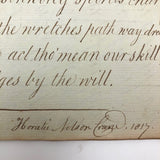 the wretches path way dre
act tho' mean our skill
ges by the will.
Horatio Nelson 1817.